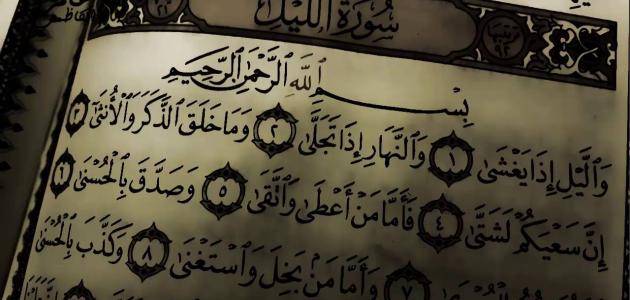 سُورَةُ اللَّيْلِ
بِسْمِ ٱللَّهِ ٱلرَّحْمَٰنِ ٱلرَّحِيمِ
وَٱلَّيْلِ إِذَا يَغْشَىٰ ١ وَٱلنَّهَارِ إِذَا تَجَلَّىٰ ٢ وَمَا خَلَقَ ٱلذَّكَرَ وَٱلْأُنثَىٰ ٣
إِنَّ سَعْيَكُمْ لَشَتَّىٰ ٤ فَأَمَّا مَنْ أَعْطَىٰ وَٱتَّقَىٰ ٥ وَصَدَّقَ بِٱلْحُسْنَىٰ ٦
٧ وَأَمَّا مَنۢ بَخِلَ وَٱسْتَغْنَىٰ ٨ وَكَذَّبَ بِٱلْحُسْنَىٰ